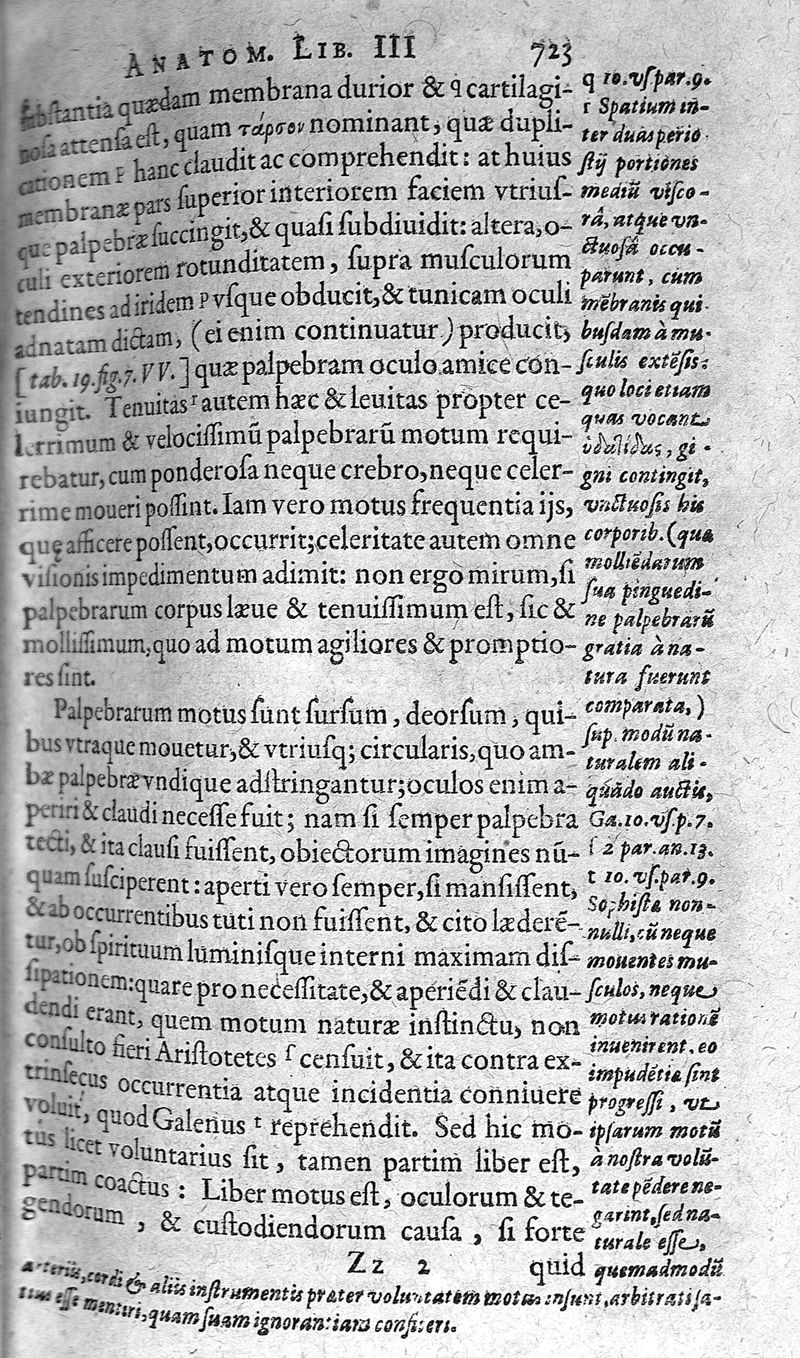 ANATOM. LIB. III 723
substantia quædam membrana durior & q̃ cartilagi-
nosa attensa est, quam τάρσον nominant, quæ dupli-
cationem P hanc claudit ac comprehendit: at huius
membranæ pars superior interiorem faciem vtrius-
que palpebræ succingit, & quasi subdiuidit: altera, o-
culi exteriorem rotunditatem, supra musculorum
tendines ad iridem P vsque obducit, & tunicam oculi
adnatam dictam, (ei enim continuatur) producit,
[tab. 19. fig. 7. VV.] quæ palpebram oculo amice con-
iungit. Tenuitas r autem hæc & leuitas propter ce-
lerrimum & velocissimũ palpebrarũ motum requi-
rebatur, cum ponderosa neque crebro, neque celer-
rime moueri possint. Iam vero motus frequentia ijs,
quę afficere possent, occurrit; celeritate autem omne
visionis impedimentum adimit: non ergo mirum, si
palpebrarum corpus læue & tenuissimum est, sic &
mollissimum, quo ad motum agiliores & promptio-
res sint.
Palpebrarum motus sunt sursum, deorsum, qui-
bus vtraque mouetur, & vtriusq; circularis, quo am-
bæ palpebræ vndique adstringantur; oculos enim a-
periri & claudi necesse fuit; nam si semper palpebra
tecti, & ita clausi fuissent, obiectorum imagines nũ-
quam susciperent: aperti vero semper, si mansissent,
& ab occurrentibus tuti non fuissent, & cito læderẽ-
tur, ob spirituum luminisque interni maximam dis-
sipationem: quare pro necessitate, & aperiẽdi & clau-
dendi erant, quem motum naturæ instinctu, non
consulto fieri Aristotetes ſ censuit, & ita contra ex-
trinsęcus occurrentia atque incidentia conniuere
voluit, quod Galenus t reprehendit. Sed hic mo-
tus licet voluntarius sit, tamen partim liber est,
partim coactus: Liber motus est, oculorum & te-
gendorum, & custodiendorum causa, si forte
Zz 2 quid
q 10. vs. par. 9.
r Spatium in-
ter duas perio-
stij portiones
mediũ visco-
sã, atque vn-
ctuosã occu-
parunt, cum
mẽbranis qui-
busdam à mu-
sculis extẽsis:
quo loci etiam
quas vocant
ὑδατίδας, gi-
gni contingit,
vnctuosis his
corporib. (quæ
molliẽdarum
sua pinguedi-
ne palpebrarũ
gratia à na-
tura fuerunt
comparata,)
sup. modũ na-
turalem ali-
quãdo auctis,
Ga. 10. vs. p. 7.
ſ 2 par. an. 13.
t 10. vs. par. 9.
Sophistæ non-
nulli, cũ neque
mouentes mu-
sculos, neque
motus rationẽ
inuenirent, eo
impudẽtiæ sint
progressi, vt
ipsarum motũ
à nostra volũ-
tate pẽdere ne-
garint, sed na-
turale esse,
quemadmodũ
arteriis, cordi & aliis instrumentis præter voluntatem motus insunt, arbitrati sa-
tius esse mentiri, quam suam ignorantiam confiteri.